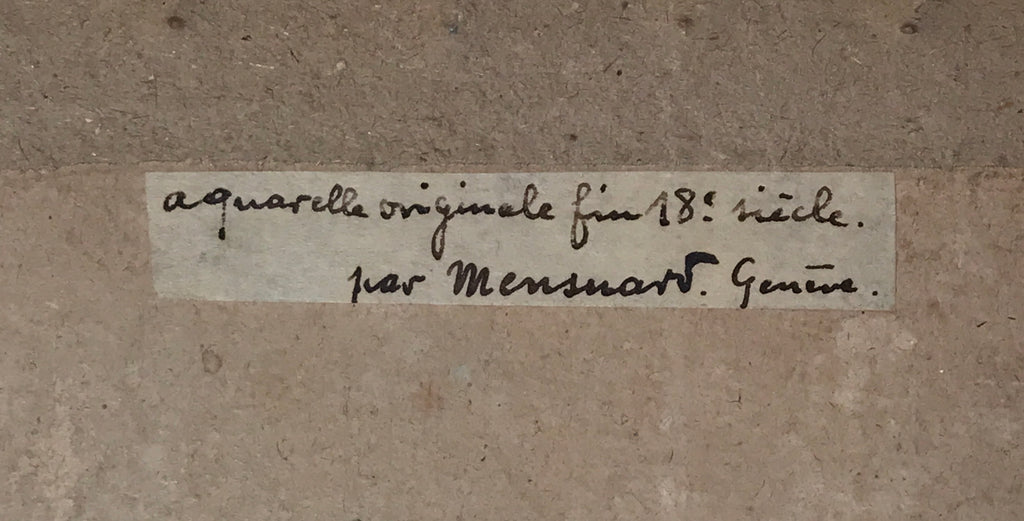 aquarelle originale fin 18e siècle.
par Mensuard. Genève.